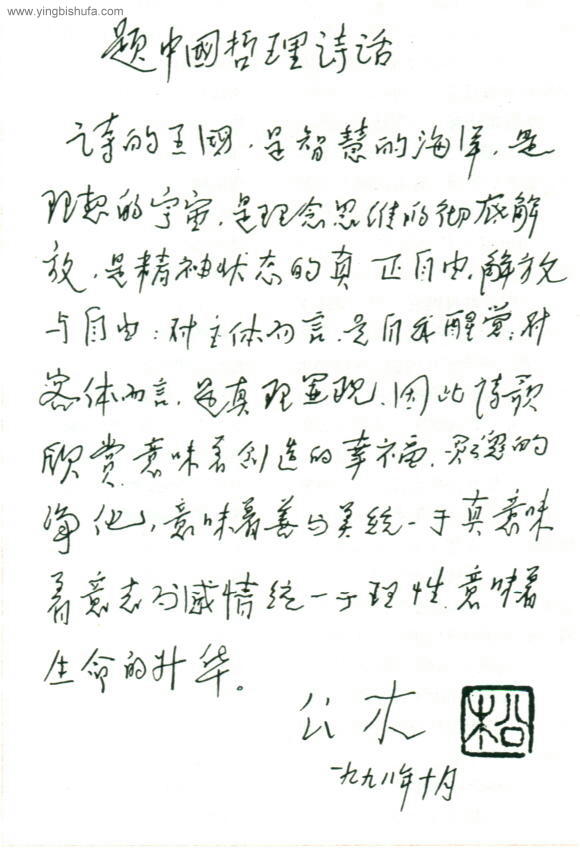 www.yingbishufa.com
题中國哲理诗话
诗的王國,是智慧的海洋,是
理想的宇宙,是理念思维的彻底解
放,是精神状态的真正自由,解放
与自由:对主体而言,是自我醒觉;对
客体而言,是真理呈现,因此诗歌
欣赏意味着创造的幸福,灵魂的
净化,意味着善与美统一于真意味
着意志与感情统一于理性,意味着
生命的升华。
公木
松
一九九八年十月